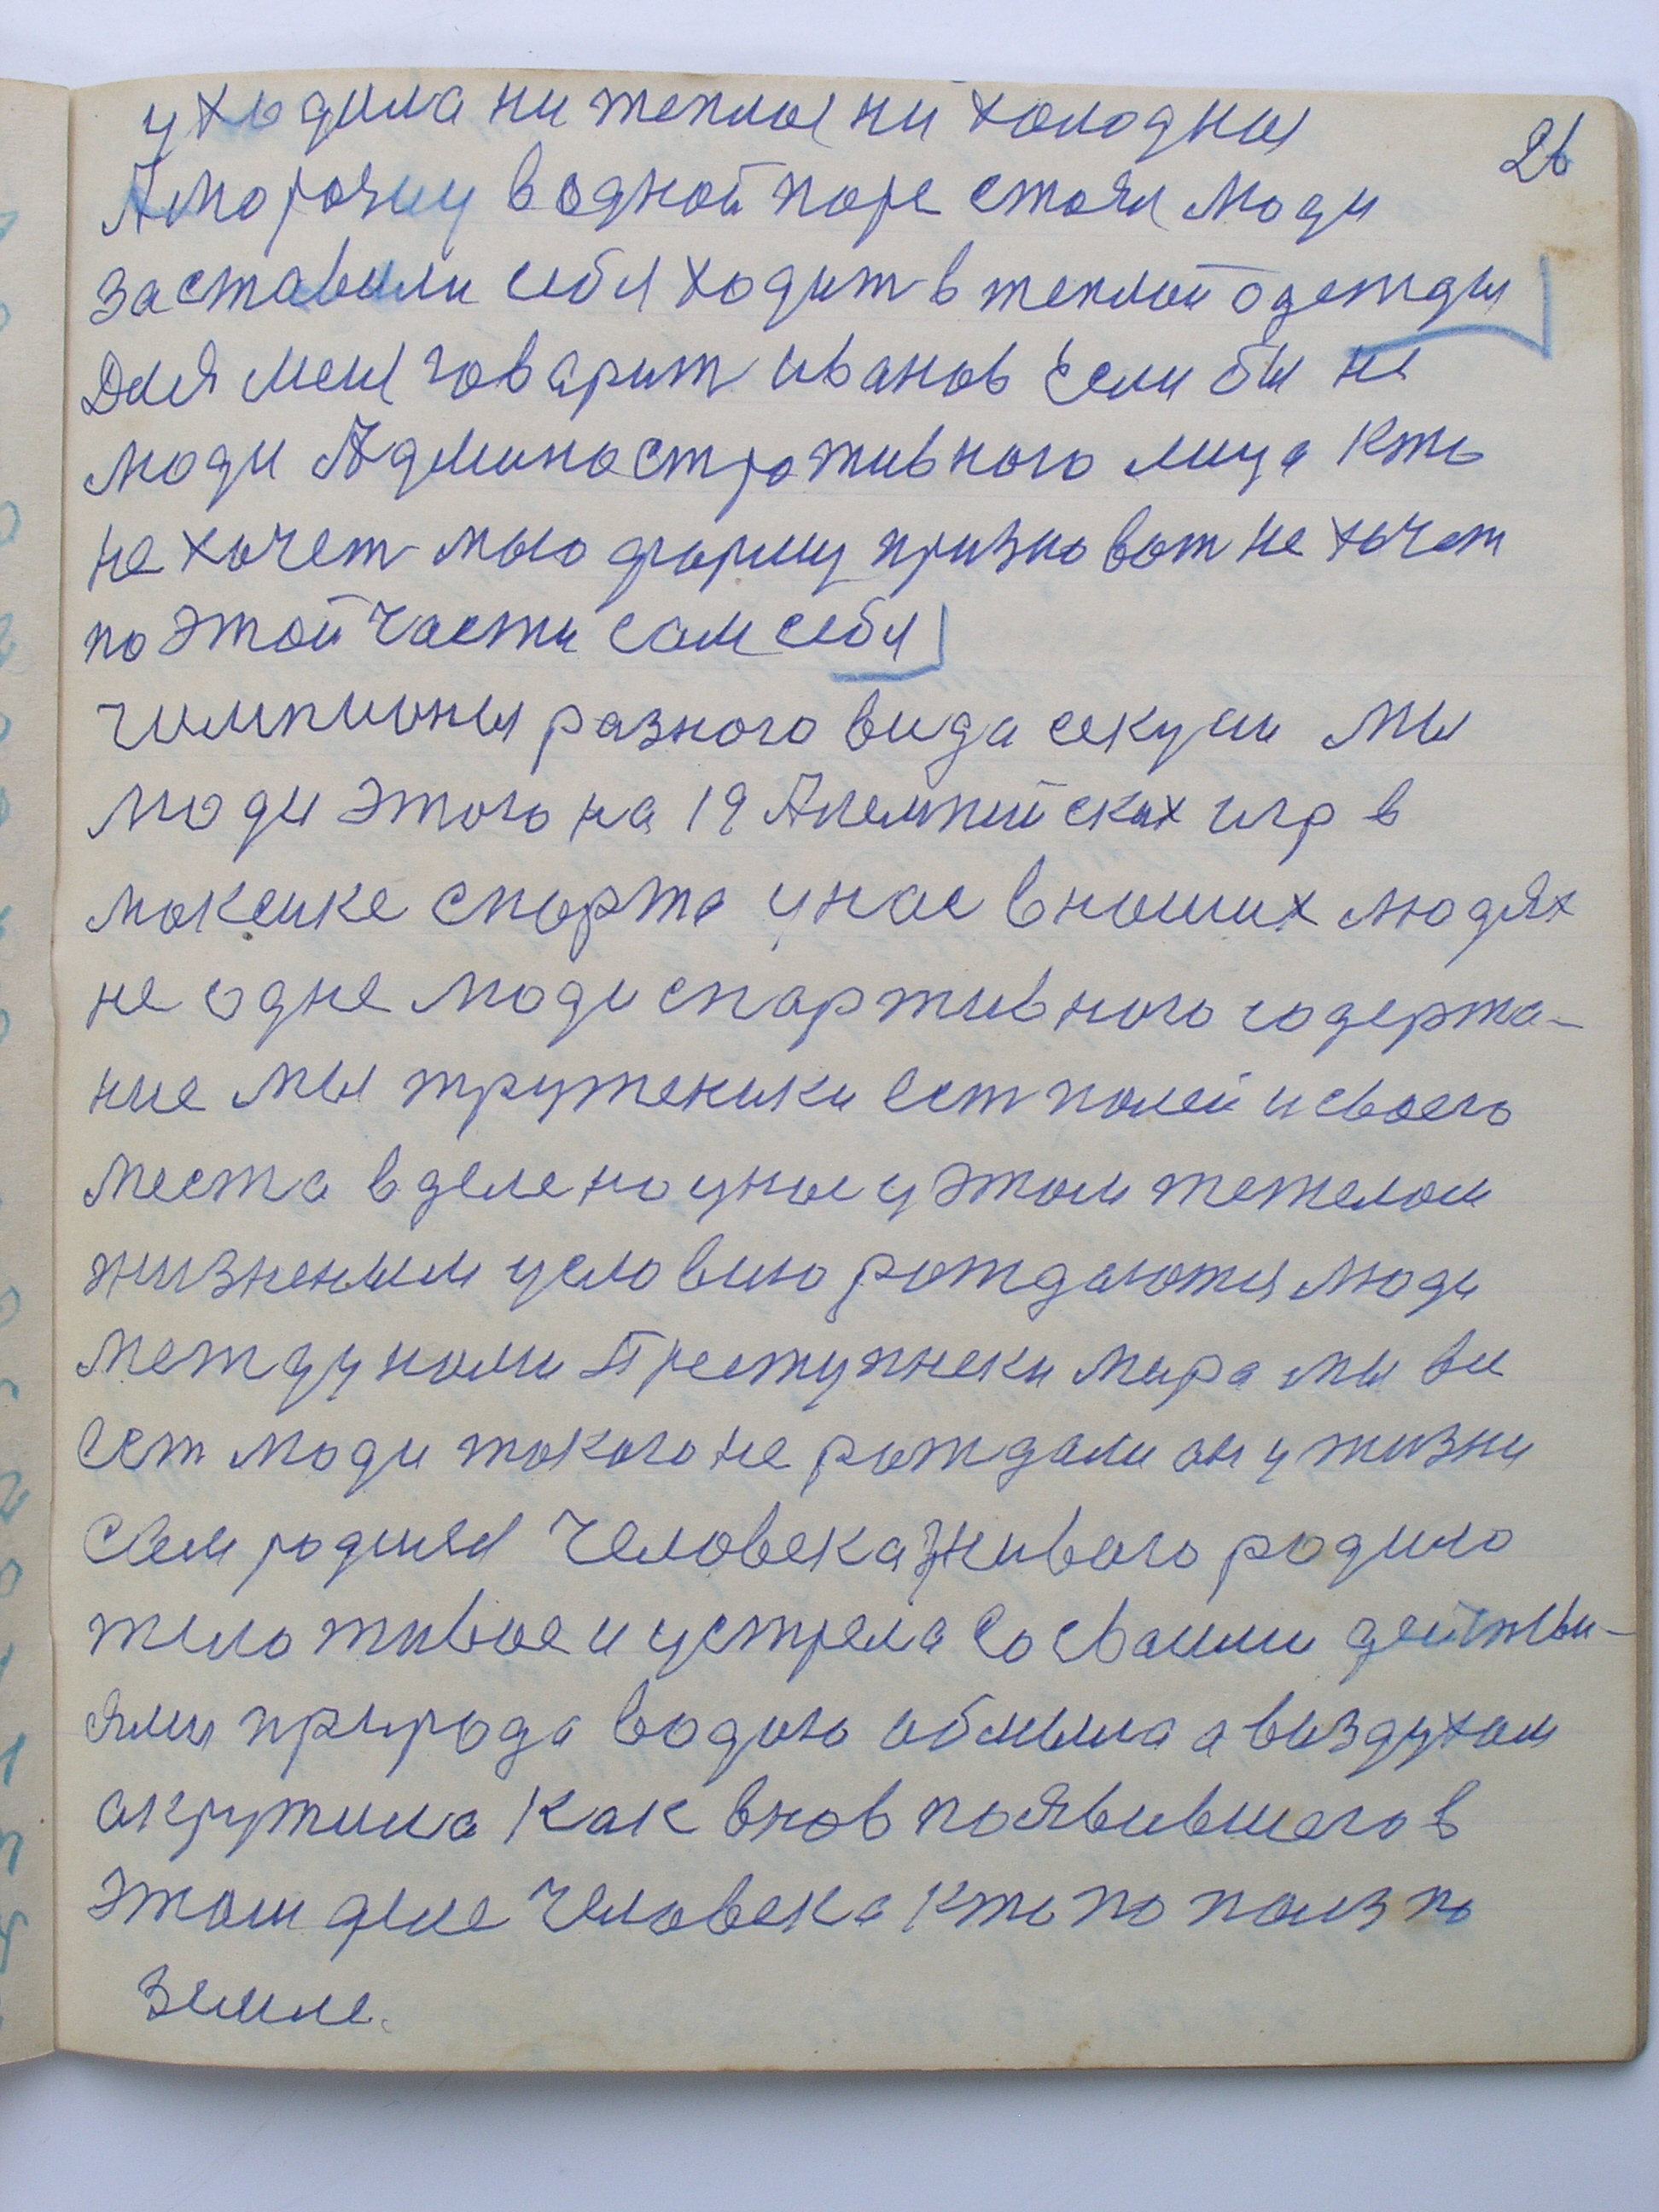 уходила ни теплы ни холодны
26
А морозну в одной поре стоял люди
заставили себя ходит в теплой одежды
Для меня говарит иванов Если бы не
люди Админастративного лица кто
не хочет мою форму признават не хочет
по этой части сам себя
чимпионы разного вида секцыи Мы
люди этого на 19 Алемпийских игр в
мексике спорта у нас в наших людях
не одне люди спартивного содержа-
ние мы труженики ест полей и своего
места в деле но у нас у этом тежелом
жизненым условию рождаются люди
между нами Преступнеки мира мы все
Ест люди такого не рождали он у жизни
Сам родился Человека живого родило
тело живое и устрела со сваими действи-
ями природа водою обмыла а воздухом
акружила как внов появившегов
этом деле человека кто по полз по
земле.